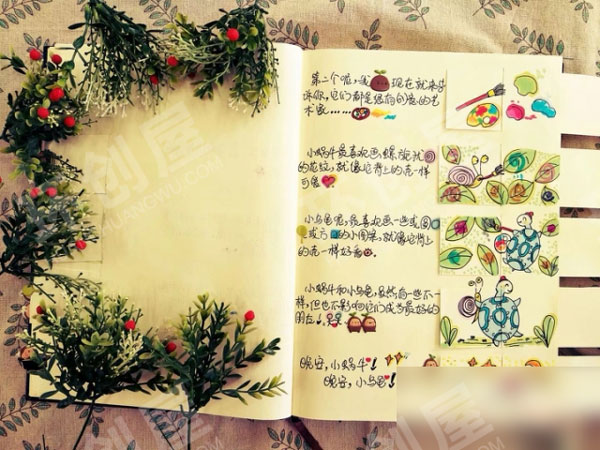 第二个啦，我现在就来告
诉你，它们都是很棒的小艺
术家……
小蜗牛最喜欢画螺旋状
的花纹，就像它背上的壳一样
可爱
小乌龟呢，最喜欢画一些或圆
或方的小图案，就像它背上
的壳一样好看。
小蜗牛和小乌龟，虽然有一些不一
样，但也不影响它们成为最好的
朋友！
晚安，小蜗牛！
晚安，小乌龟！
创屋
CHUANGWU.COM